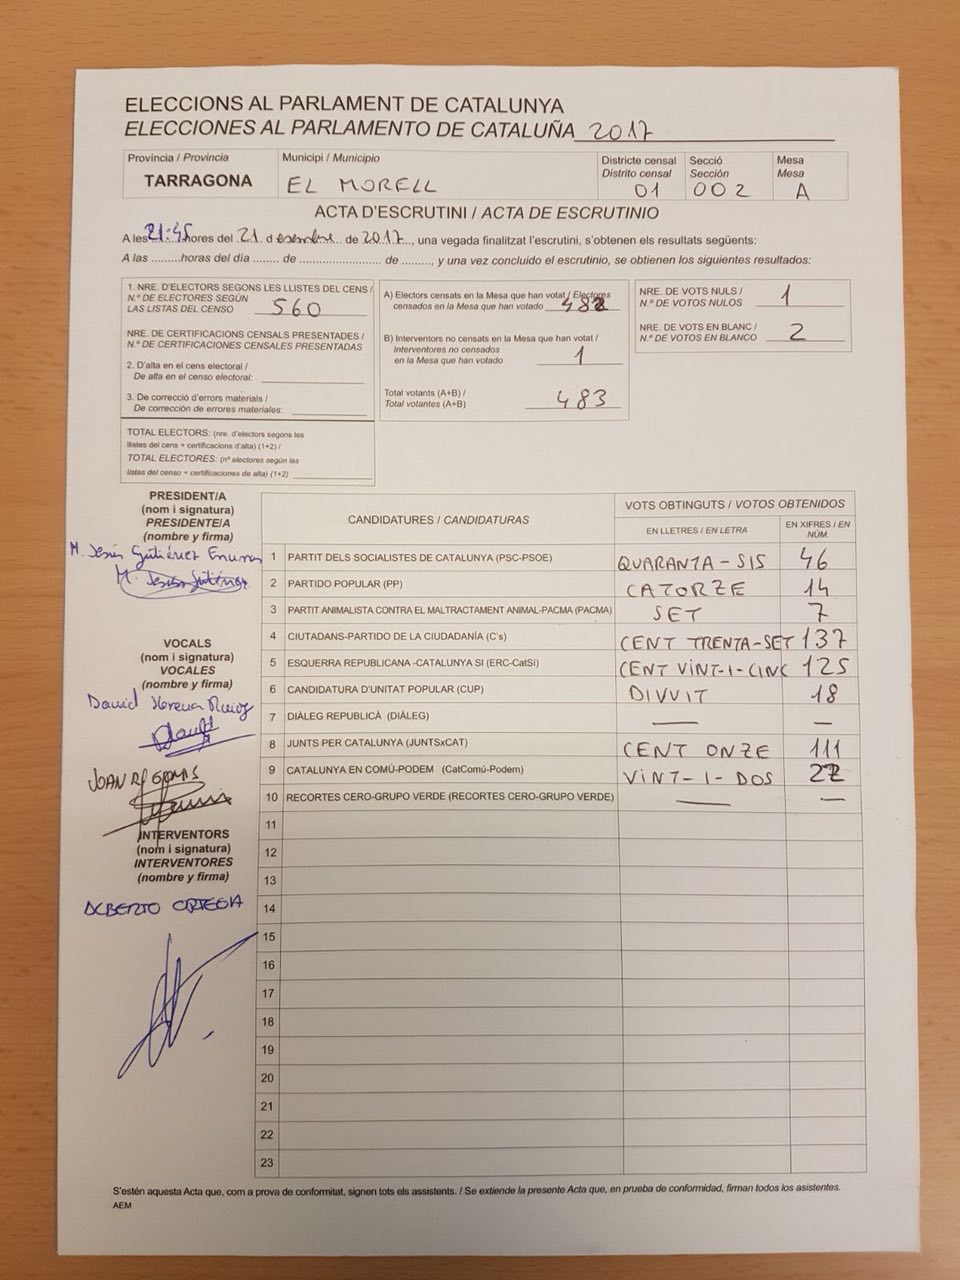 ELECCIONS AL PARLAMENT DE CATALUNYA
ELECCIONES AL PARLAMENTO DE CATALUÑA 2017
Província / Provincia
TARRAGONA
Municipi / Municipio
EL MORELL
Districte censal
Distrito censal
01
Secció
Sección
002
Mesa
Mesa
A
ACTA D'ESCRUTINI / ACTA DE ESCRUTINIO
A les 21:45 hores del 21 d desembre de 2017, una vegada finalitzat l'escrutini, s'obtenen els resultats següents:
A las .........horas del día ........ de ........................ de ........., y una vez concluido el escrutinio, se obtienen los siguientes resultados:
1. NRE. D'ELECTORS SEGONS LES LLISTES DEL CENS /
N.º DE ELECTORES SEGÚN
LAS LISTAS DEL CENSO 560
NRE. DE CERTIFICACIONS CENSALS PRESENTADES /
N.º DE CERTIFICACIONES CENSALES PRESENTADAS
2. D'alta en el cens electoral /
De alta en el censo electoral:
3. De correcció d'errors materials /
De corrección de errores materiales:
TOTAL ELECTORS: (nre. d'electors segons les
llistes del cens + certificacions d'alta) (1+2) /
TOTAL ELECTORES: (nº electores según las
listas del censo + certificaciones de alta) (1+2)
A) Electors censats en la Mesa que han votat / Electores
censados en la Mesa que han votado 482
B) Interventors no censats en la Mesa que han votat /
Interventores no censados
en la Mesa que han votado 1
Total votants (A+B) /
Total votantes (A+B) 483
NRE. DE VOTS NULS /
N.º DE VOTOS NULOS 1
NRE. DE VOTS EN BLANC /
N.º DE VOTOS EN BLANCO 2
PRESIDENT/A
(nom i signatura)
PRESIDENTE/A
(nombre y firma)
M. Jesús Gutiérrez
M. Jesús Gutiérrez
VOCALS
(nom i signatura)
VOCALES
(nombre y firma)
David
JOAN
INTERVENTORS
(nom i signatura)
INTERVENTORES
(nombre y firma)
ALBERTO ORTEGA
CANDIDATURES / CANDIDATURAS
VOTS OBTINGUTS / VOTOS OBTENIDOS
EN LLETRES / EN LETRA
EN XIFRES / EN NÚM.
1 PARTIT DELS SOCIALISTES DE CATALUNYA (PSC-PSOE) QUARANTA-SIS 46
2 PARTIDO POPULAR (PP) CATORZE 14
3 PARTIT ANIMALISTA CONTRA EL MALTRACTAMENT ANIMAL-PACMA (PACMA) SET 7
4 CIUTADANS-PARTIDO DE LA CIUDADANÍA (C's) CENT TRENTA-SET 137
5 ESQUERRA REPUBLICANA -CATALUNYA SI (ERC-CatSí) CENT VINT-I-CINC 125
6 CANDIDATURA D'UNITAT POPULAR (CUP) DIVUIT 18
7 DIÀLEG REPUBLICÀ (DIÀLEG) — —
8 JUNTS PER CATALUNYA (JUNTSxCAT) CENT ONZE 111
9 CATALUNYA EN COMÚ-PODEM (CatComú-Podem) VINT-I-DOS 22
10 RECORTES CERO-GRUPO VERDE (RECORTES CERO-GRUPO VERDE) — —
11
12
13
14
15
16
17
18
19
20
21
22
23
S'estén aquesta Acta que, com a prova de conformitat, signen tots els assistents. / Se extiende la presente Acta que, en prueba de conformidad, firman todos los asistentes.
AEM